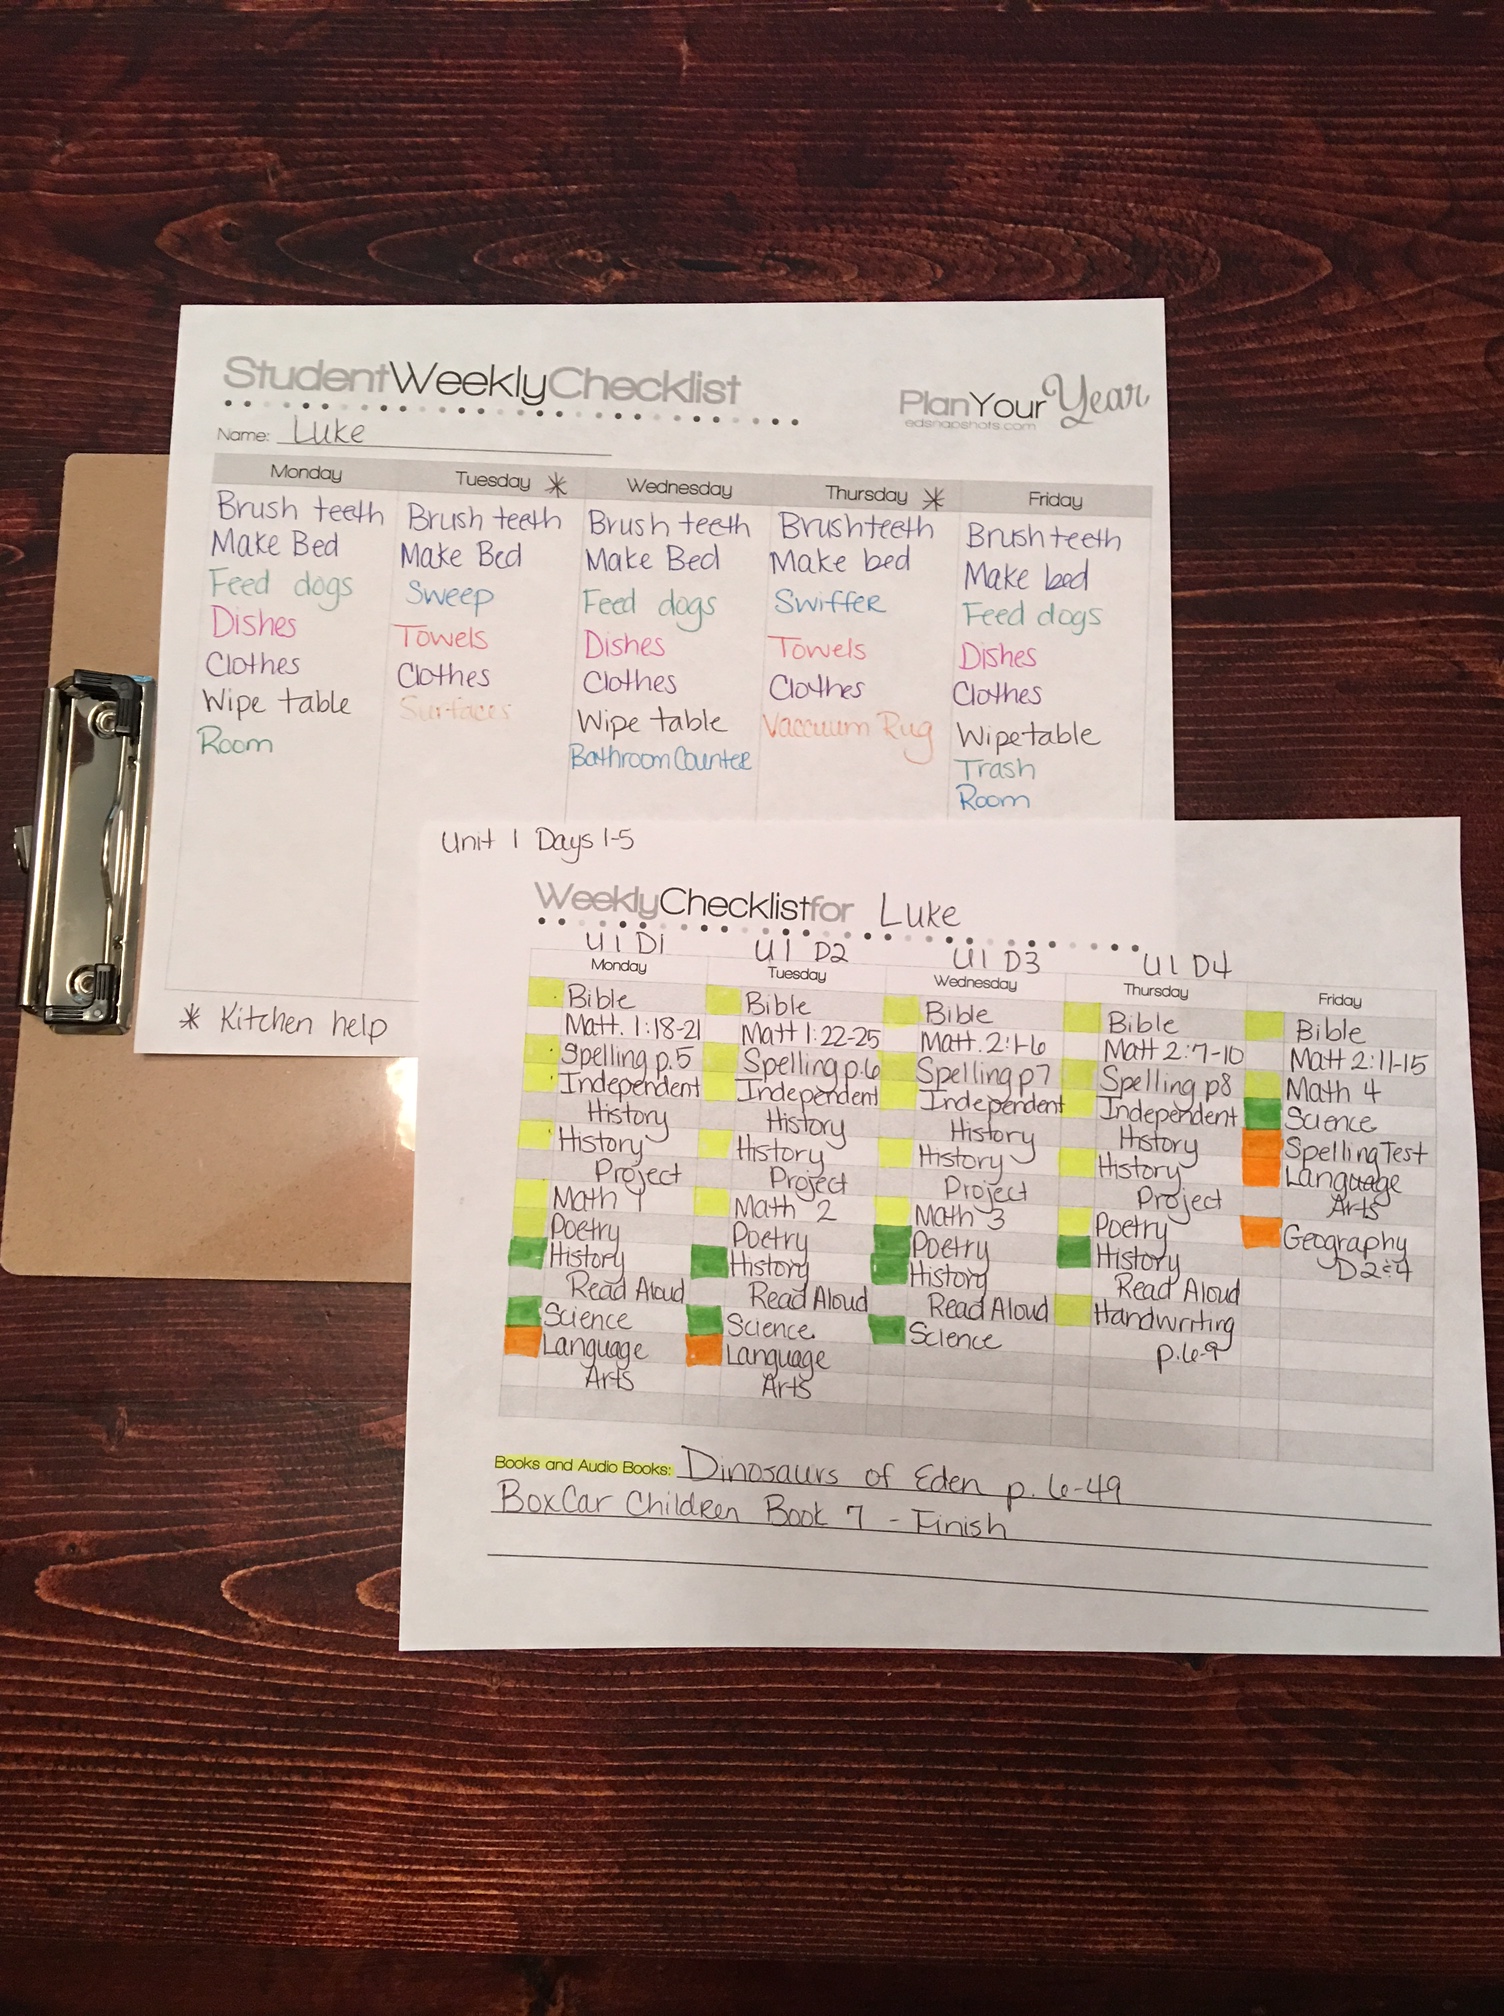 StudentWeeklyChecklist
PlanYourYear
edsnapshots.com
Name: Luke
Monday
Brush teeth
Make Bed
Feed dogs
Dishes
Clothes
Wipe table
Room
Tuesday *
Brush teeth
Make Bed
Sweep
Towels
Clothes
Surfaces
Wednesday
Brush teeth
Make Bed
Feed dogs
Dishes
Clothes
Wipe table
Bathroom Counter
Thursday *
Brush teeth
Make bed
Swiffer
Towels
Clothes
Vaccuum Rug
Friday
Brush teeth
Make bed
Feed dogs
Dishes
Clothes
Wipe table
Trash
Room
* Kitchen help
Unit 1 Days 1-5
WeeklyChecklistfor Luke
U1 D1
Monday
Bible
Matt. 1:18-21
Spelling p.5
Independent
History
History
Project
Math 1
Poetry
History
Read Aloud
Science
Language
Arts
U1 D2
Tuesday
Bible
Matt 1:22-25
Spelling p.6
Independent
History
History
Project
Math 2
Poetry
History
Read Aloud
Science
Language
Arts
U1 D3
Wednesday
Bible
Matt. 2:1-6
Spelling p7
Independent
History
History
Project
Math 3
Poetry
History
Read Aloud
Science
U1 D4
Thursday
Bible
Matt 2:7-10
Spelling p8
Independent
History
History
Project
Poetry
History
Read Aloud
Handwriting
p.6-9
Friday
Bible
Matt 2:11-15
Math 4
Science
Spelling Test
Language
Arts
Geography
D2&4
Books and Audio Books: Dinosaurs of Eden p. 6-49
BoxCar Children Book 7 - Finish